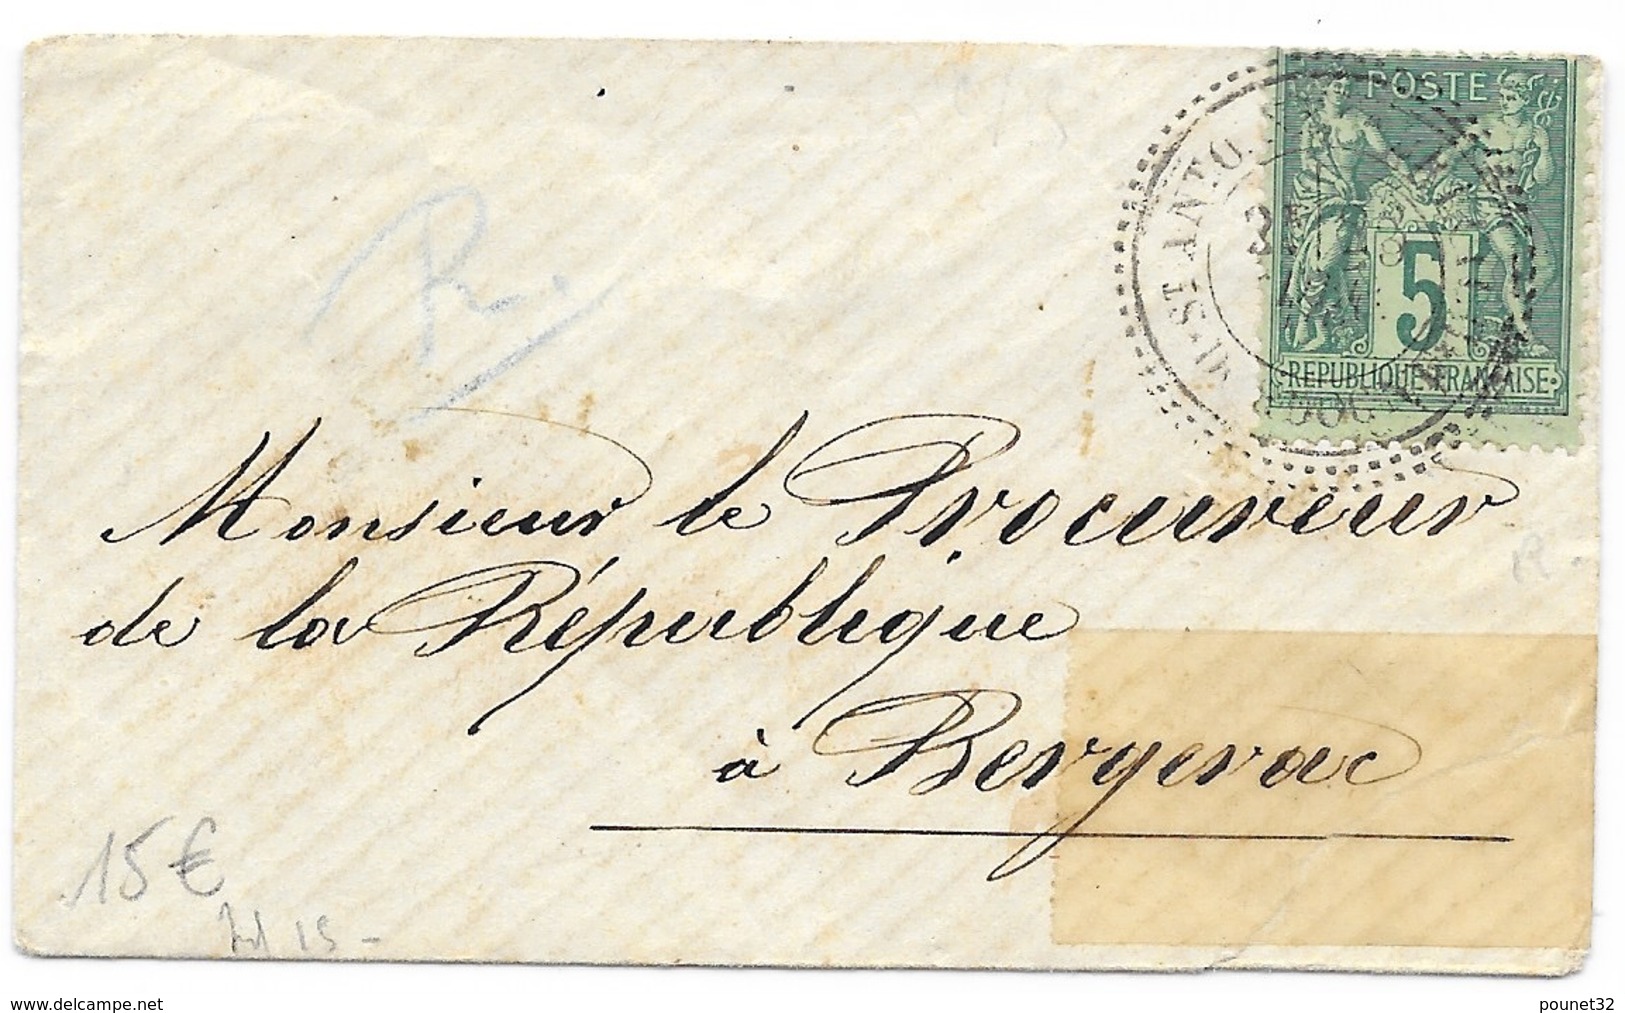 POSTE
5
RÉPUBLIQUE FRANÇAISE
R.
Monsieur le Procureur
de la République
à Bergerac
15€
www.delcampe.net
pounet32